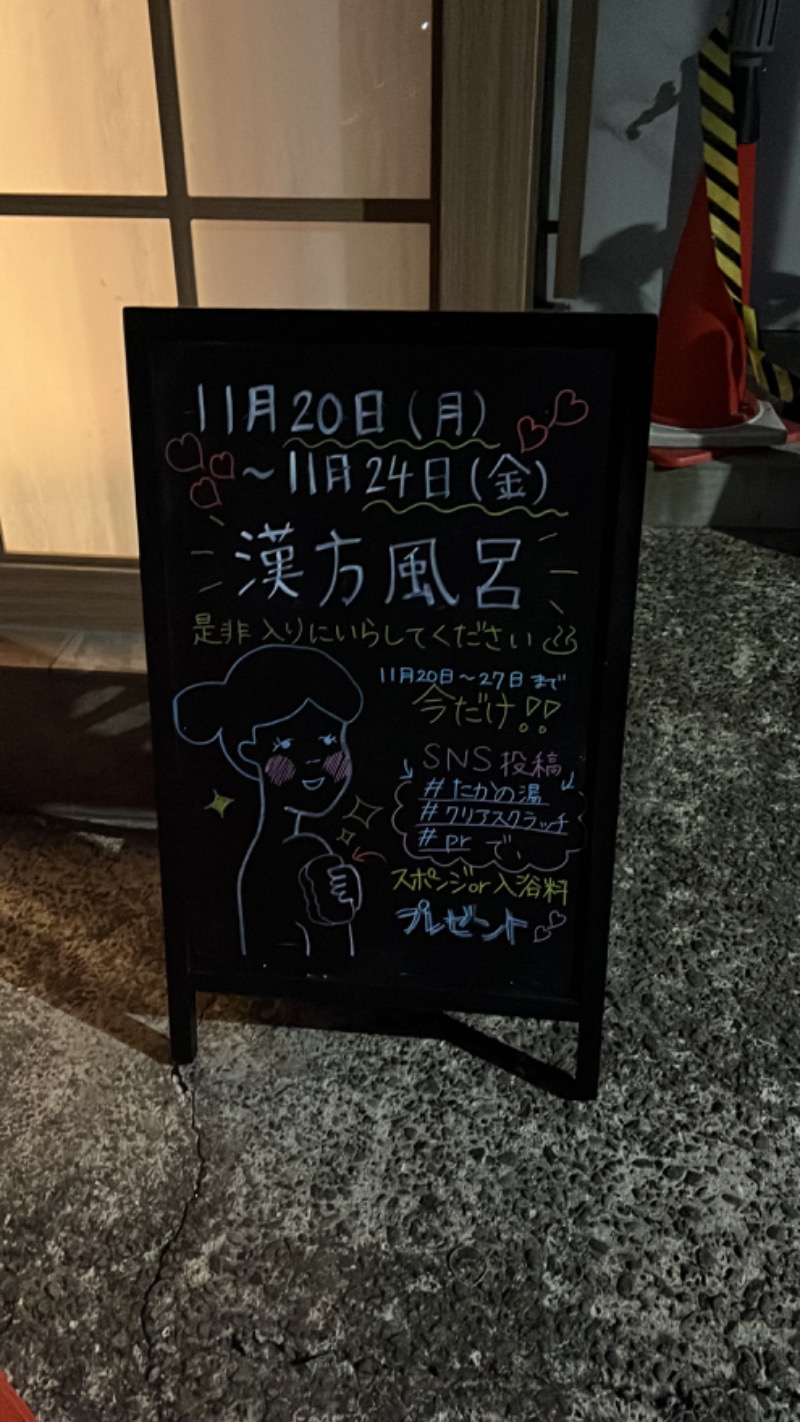 11月20日(月)
~11月24日(金)
漢方風呂
是非入りにいらしてください♨
11月20日~27日まで
今だけ!!
SNS投稿
#たかの湯
#クリアスクラッチ
#prで
スポンジor入浴料
プレゼント